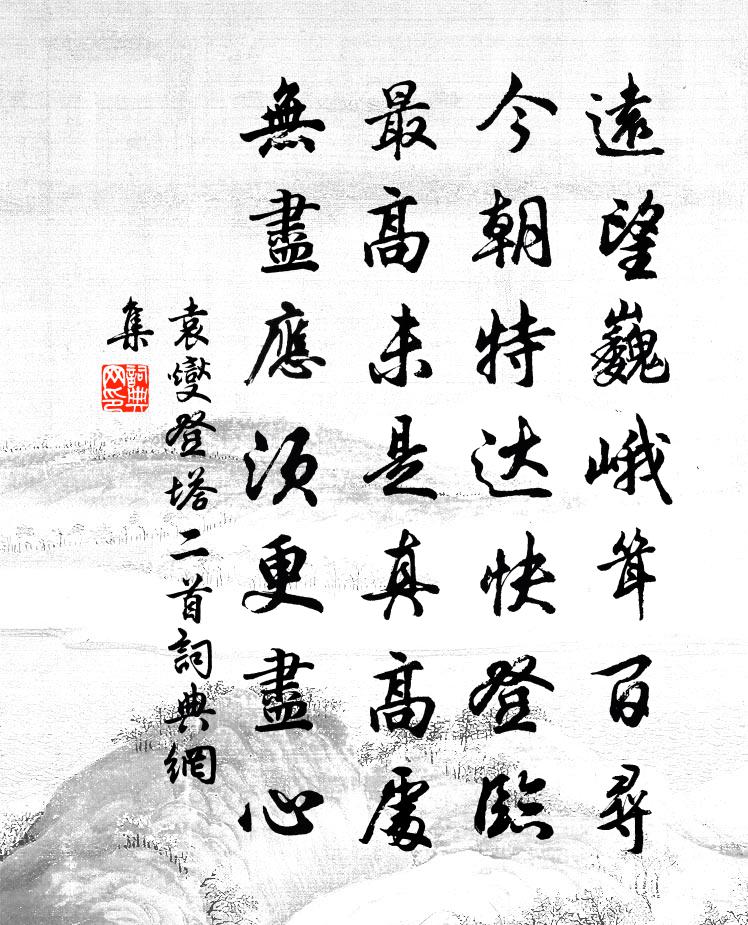 遠望巍峨耸百尋
今朝特达快登臨
最高未是真高處
無盡應須更盡心
袁燮登塔二首詞典網
集
詞典网印